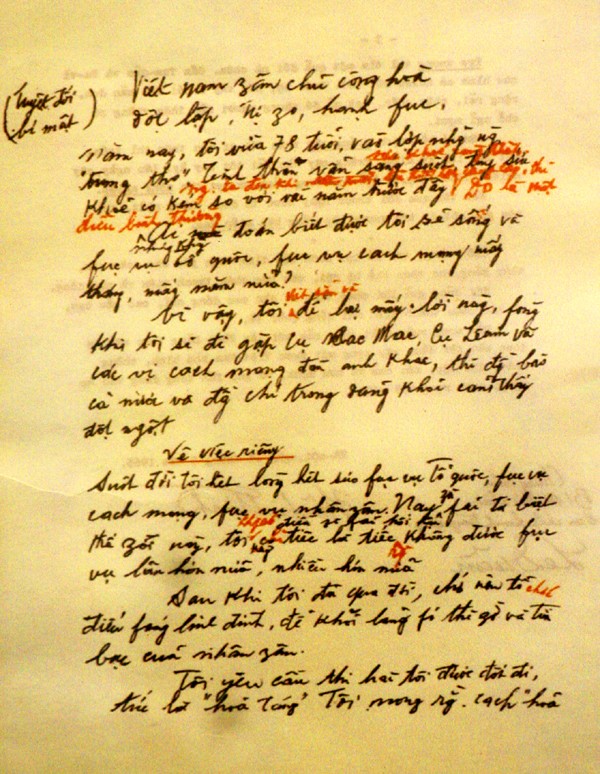 (Tuyệt đối
bí mật)
Việt nam zân chủ cộng hoà
độc lập, tự zo, hạnh fúc.
Năm nay, tôi vừa 78 tuổi, vào lớp những ng
"trung thọ". Tinh thần vẫn sáng suốt, tuy sức
khoẻ có kém so với vài năm trước đây. Đó là một
điều bình thường
Ai mà đoán biết được tôi sẽ sống và
fục vụ tổ quốc, fục vụ cách mạng mấy
tháng, mấy năm nữa?
Vì vậy, tôi viết sẵn và để lại mấy lời này, fòng
khi tôi sẽ đi gặp cụ Các Mác, Cụ Lênin và
các vị cách mạng đàn anh khác, thì đ/b
cả nước và đ/c trong đảng khỏi cảm thấy
đột ngột
Về việc riêng
Suốt đời tôi hết lòng hết sức fục vụ tổ quốc, fục vụ
cách mạng, fục vụ nhân zân. Nay zù fải từ biệt
thế zới này, tôi không có điều gì fải hối hận
chỉ tiếc là tiếc không được fục
vụ lâu hơn nữa, nhiều hơn nữa
Sau khi tôi đã qua đời, chớ nên tổ chức
điếu fúng linh đình, để khỏi lãng fí thì zờ và tiền
bạc của nhân zân.
Tôi yêu cầu thi hài tôi được đốt đi,
tức là "hoả táng". Tôi mong rằng cách "hoả